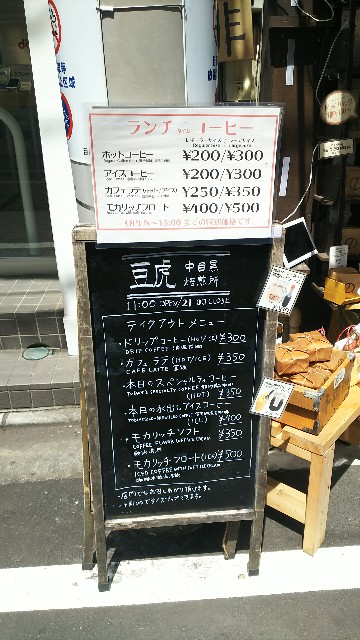 ランチタイムコーヒー
レギュラーサイズ ラージサイズ
Regular size Large size
ホットコーヒー ¥200/¥300
アイスコーヒー ¥200/¥300
カフェラテ(ホット/アイス) ¥250/¥350
モカリッチフロート ¥400/¥500
OPEN~15:00までの特別価格です。
豆虎 中目黒焙煎所
11:00 OPEN/21:00 CLOSE
テイクアウトメニュー
・ドリップコーヒー(HOT/ICE) ¥300
DRIP COFFEE
・カフェラテ(HOT/ICE) ¥350
CAFE LATTE
・本日のスペシャルティコーヒー
TODAY'S SPECIALTY COFFEE
(HOT) ¥350
・本日の水出しアイスコーヒー
(ICE) ¥400
・モカリッチソフト ¥350
COFFEE FLAVOR
・モカリッチフロート(ICE) ¥500
ICED COFFEE WITH SOFT ICECREAM